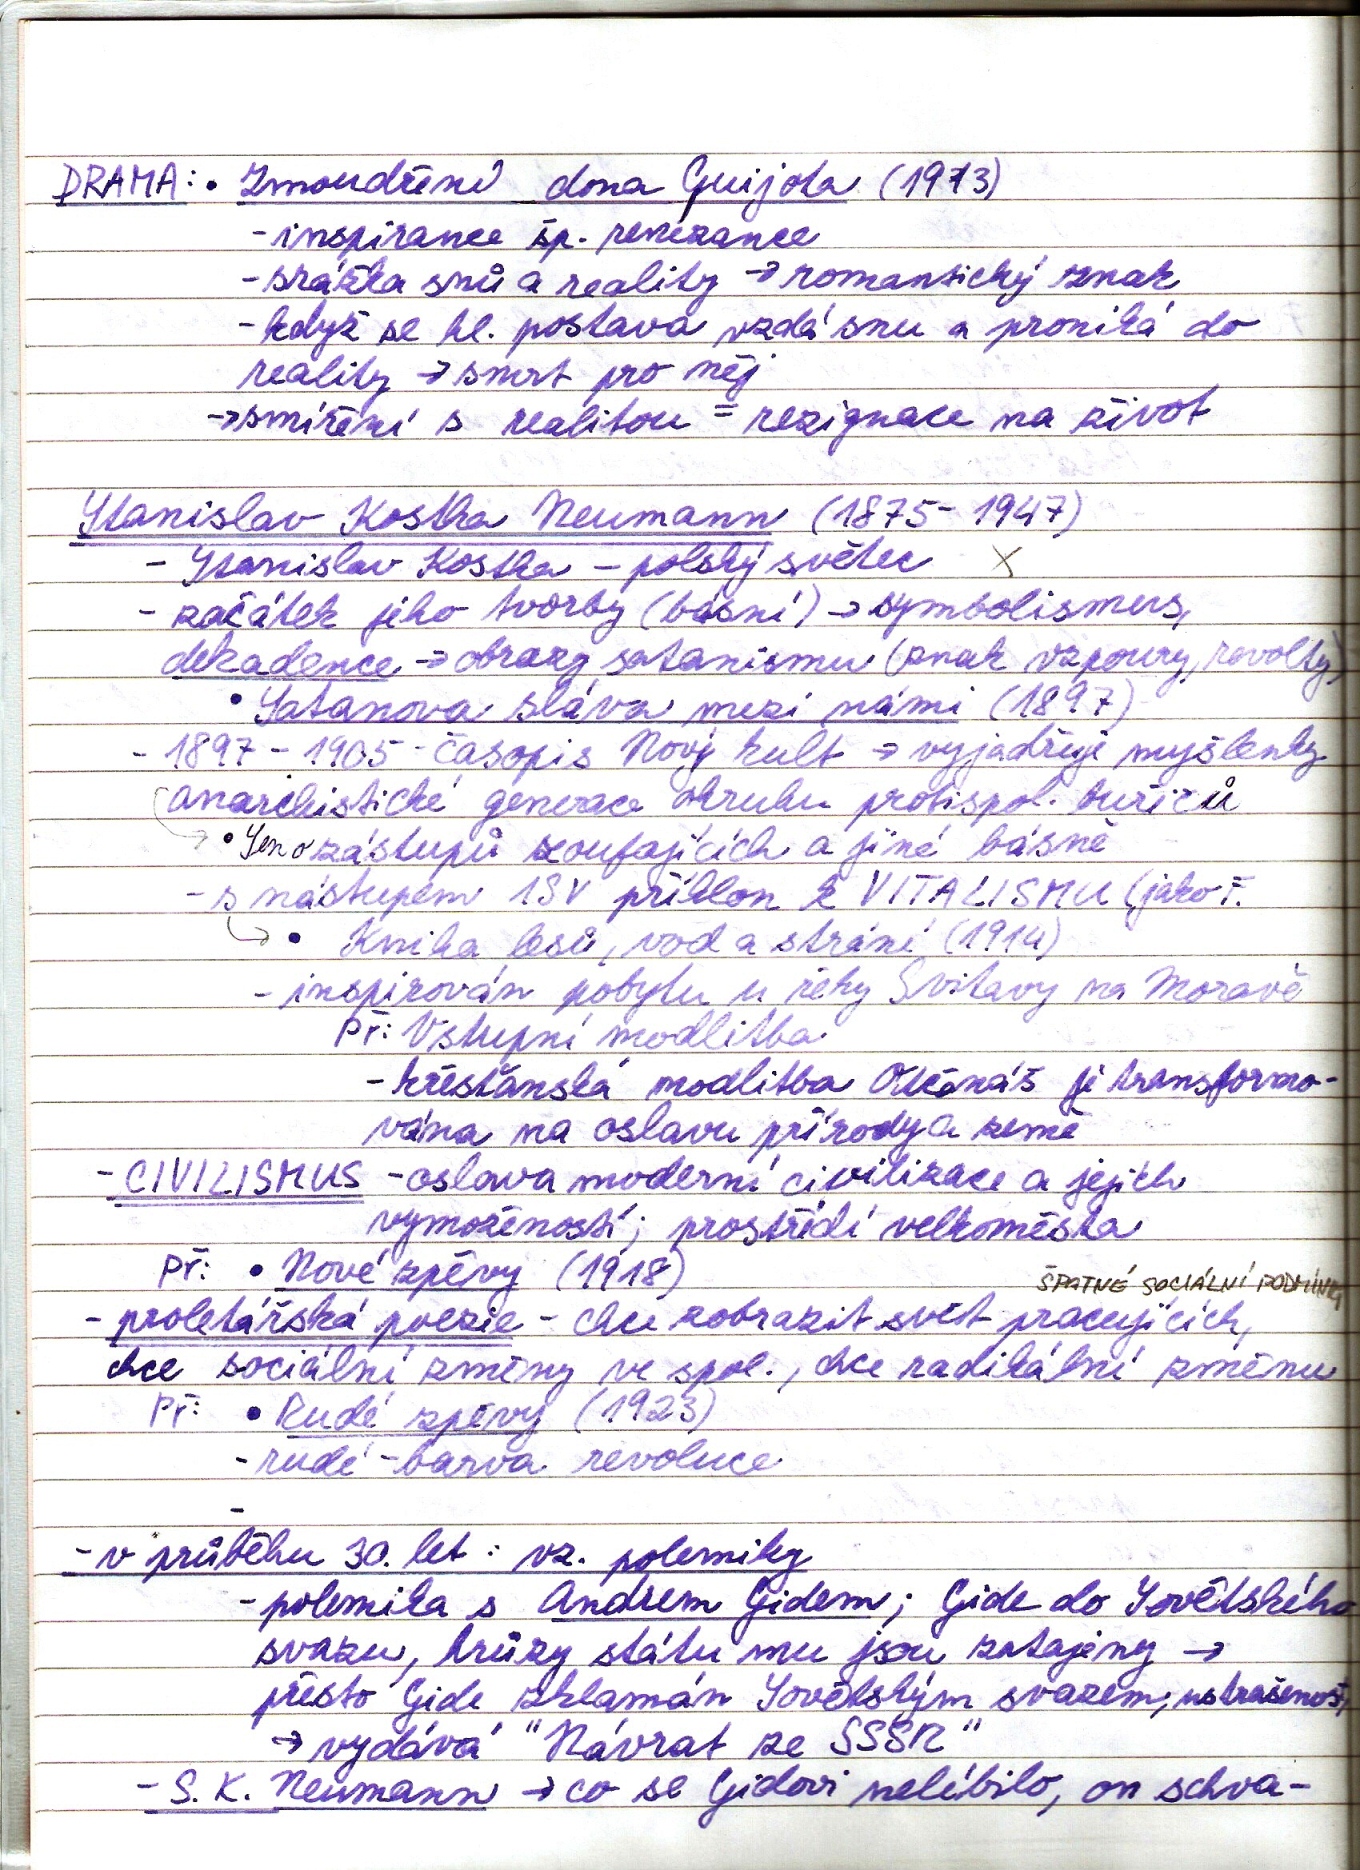 DRAMA: • Zmoudření dona Quijota (1913)
- inspirance šp. renezance
- srážka snů a reality → romantický znak
- když se hl. postava vzdá snu a proniká do
reality → smrt pro něj
→ smíření s realitou = rezignace na život
Stanislav Kostka Neumann (1875 - 1947)
- Stanislav Kostka - polský světec X
- začátek jeho tvorby (básní) → symbolismus,
dekadence → obrazy satanismu (znak vzpoury, revolty)
• Satanova sláva mezi námi (1897)
- 1897 - 1905 - časopis Nový kult → vyjadřuje myšlenky
anarchistické generace okruhu protispol. buřičů
• Sen o zástupu zoufajících a jiné básně
- s nástupem 1SV příklon k VITALISMU (jako F.
• Kniha lesů, vod a strání (1914)
- inspirován pobytu u řeky Svitavy na Moravě
Př: Vstupní modlitba
- křesťanská modlitba Otčenáš je transformo-
vána na oslavu přírody a země
- CIVILISMUS - oslava moderní civilizace a jejích
vymožeností; prostředí velkoměsta
Př: • Nové zpěvy (1918)
ŠPATNÉ SOCIÁLNÍ PODMÍNKY
- proletářská poezie - chce zobrazit svět pracujících,
chce sociální změny ve spol., chce radikální změnu
Př: • Rudé zpěvy (1923)
- rudé - barva revoluce
-
- v průběhu 30. let: vz. polemiky
- polemika s Andrem Gidem; Gide do Sovětského
svazu, hrůzy státu mu jsou zatajeny →
přesto Gide zklamán Sovětským svazem, ustrašenost,
→ vydává "Návrat ze SSSR"
- S. K. Neumann → co se Gidovi nelíbilo, on schva-